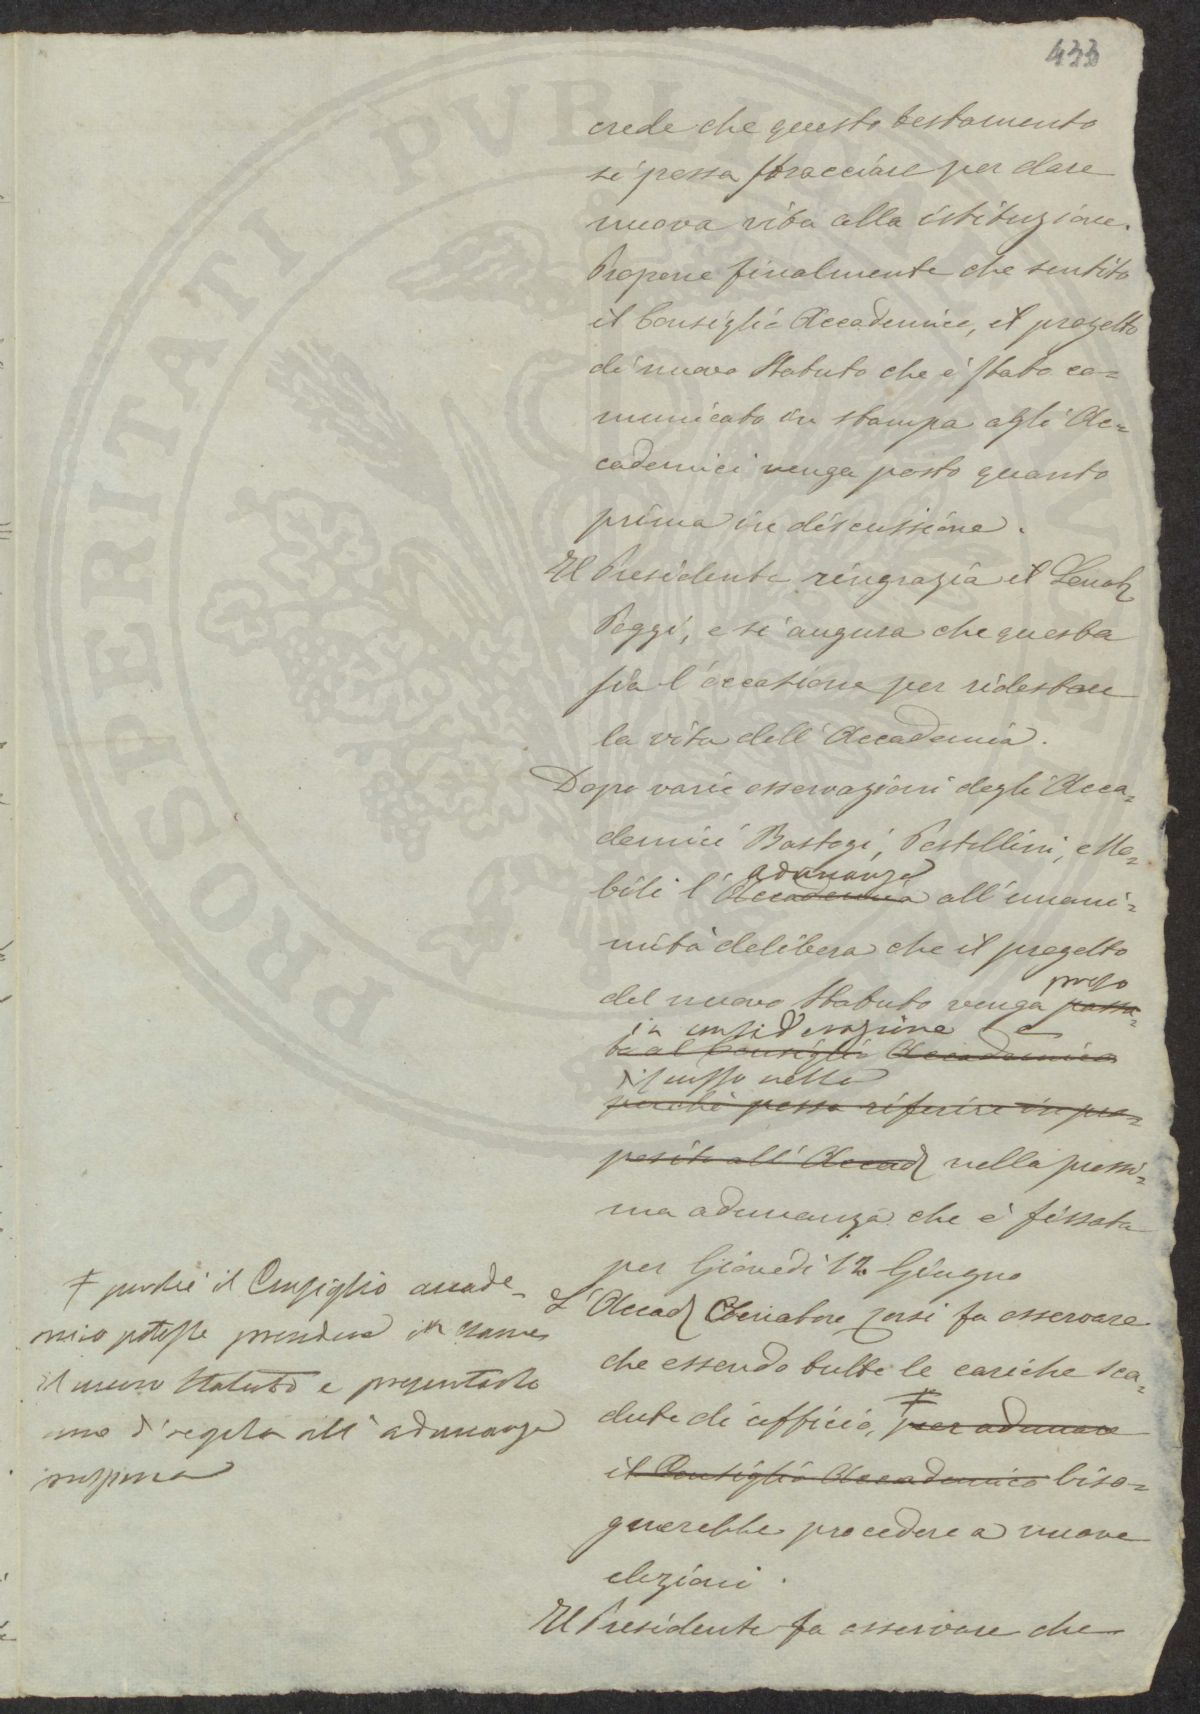 433
crede che questo testamento
si possa stracciare per dare
nuova vita alla istituzione.
Propone finalmente che sentito
il Consiglio Accademico, il progetto
di nuovo Statuto che è stato co=
municato in stampa agli Ac=
cademici venga posto quanto
prima in discussione.
Il Presidente ringrazia il Senat
Poggi, e si augura che questa
sia l'occasione per ridestare
la vita dell'Accademia.
Dopo varie osservazioni degli Acca=
demici Bastogi, Pestellini, e No=
adunanza
bili l'Accademia all'unani=
mità delibera che il progetto
preso
del nuovo Statuto venga passa=
in considerazione e
to al Consiglio Accademico
discusso nella
perchè possa riferire in pro=
posito all'Accad nella prossi=
ma adunanza che è fissata
per Giovedì 12 Giugno
L'Accad Senatore Corsi fa osservare
che essendo tutte le cariche sca=
dute di ufficio, per adunare
il Consiglio Accademico biso=
gnerebbe procedere a nuove
elezioni.
Il Presidente fa osservare che
perchè il Consiglio accade=
mico potesse prendere in esame
il nuovo Statuto e presentarlo
come di regola all'adunanza
prossima
PROSPERITATI PVBLICAE